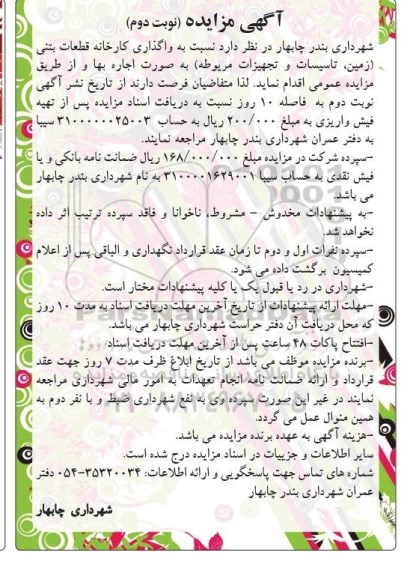 آگهی مزایده (نوبت دوم)
شهرداری بندر چابهار در نظر دارد نسبت به واگذاری کارخانه قطعات بتنی
(زمین، تاسیسات و تجهیزات مربوطه) به صورت اجاره بها و از طریق
مزایده عمومی اقدام نماید. لذا متقاضیان فرصت دارند از تاریخ نشر آگهی
نوبت دوم به فاصله ۱۰ روز نسبت به دریافت اسناد مزایده پس از تهیه
فیش واریزی به مبلغ ۲۰۰/۰۰۰ ریال به حساب ۳۱۰۰۰۰۰۰۲۵۰۰۳ سیبا
به دفتر عمران شهرداری بندر چابهار مراجعه نمایند.
-سپرده شرکت در مزایده مبلغ ۱۶۸/۰۰۰/۰۰۰ ریال ضمانت نامه بانکی و یا
فیش نقدی به حساب سیبا ۳۱۰۰۰۰۱۶۲۹۰۰۱ به نام شهرداری بندر چابهار
می باشد.
-به پیشنهادات مخدوش – مشروط، ناخوانا و فاقد سپرده ترتیب اثر داده
نخواهد شد.
-سپرده نفرات اول و دوم تا زمان عقد قرارداد نگهداری و الباقی پس از اعلام
کمیسیون برگشت داده می شود.
-شهرداری در رد یا قبول یک یا کلیه پیشنهادات مختار است.
-مهلت ارائه پیشنهادات از تاریخ آخرین مهلت دریافت اسناد به مدت ۱۰ روز
که محل دریافت آن دفتر حراست شهرداری چابهار می باشد.
-افتتاح پاکات ۴۸ ساعت پس از آخرین مهلت دریافت اسناد
-برنده مزایده موظف می باشد از تاریخ ابلاغ ظرف مدت ۷ روز جهت عقد
قرارداد و ارائه ضمانت نامه انجام تعهدات به امور مالی شهرداری مراجعه
نمایند در غیر این صورت سپرده وی به نفع شهرداری ضبط و با نفر دوم به
همین منوال عمل می گردد.
-هزینه آگهی به عهده برنده مزایده می باشد.
سایر اطلاعات و جزییات در اسناد مزایده درج شده است.
شماره های تماس جهت پاسخگویی و ارائه اطلاعات: ۳۵۳۲۰۰۳۴-۰۵۴ دفتر
عمران شهرداری بندر چابهار
شهرداری چابهار